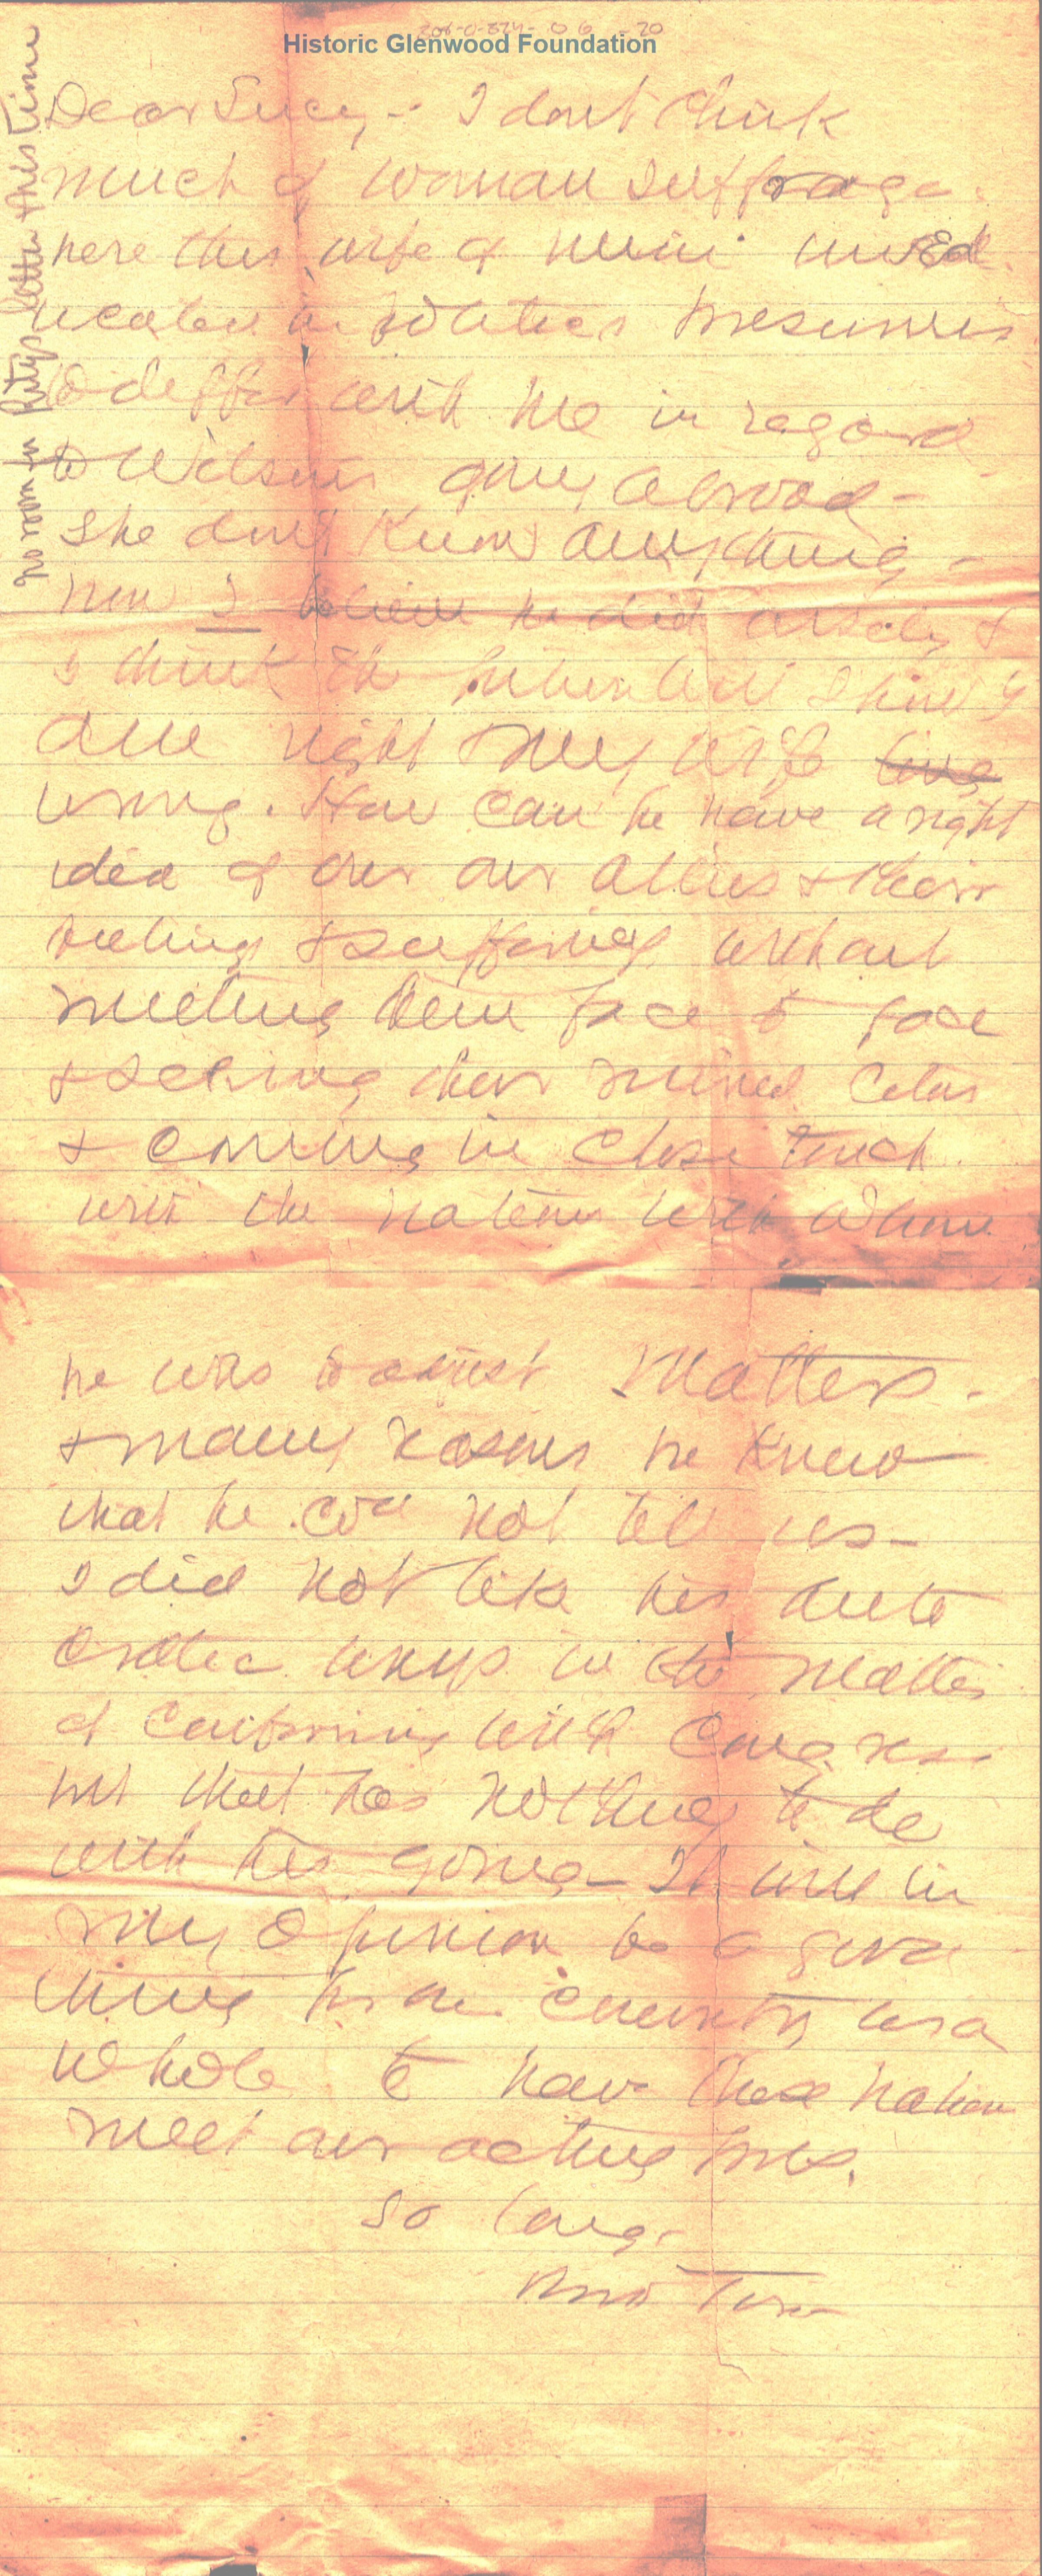 Historic Glenwood Foundation
no room in letter this time
Dear Lucy - I dont think
much of woman suffrage.
here this wife of mine uned
ucated in politics presumes
to differ with me in regard
to Wilsons going abroad -
She dont know anything -
now I believe he did wisely &
I think the future will show I
am right & my wife
wrong. How can he have a right
idea of our our allies & their
feelings & sufferings without
meeting them face to face
& seeing their ruined cities
& coming in close touch
with the nations with whom
he was to adjust matters -
& many reasons he knew
that he cou not tell us -
I did not like his auto
cratic ways in the matter
of conferring with Congress
but that has nothing to do
with his going - It will in
my opinion be a good
thing for our country as a
whole to have these nations
meet our acting Pres.
So long -
Bro Tom